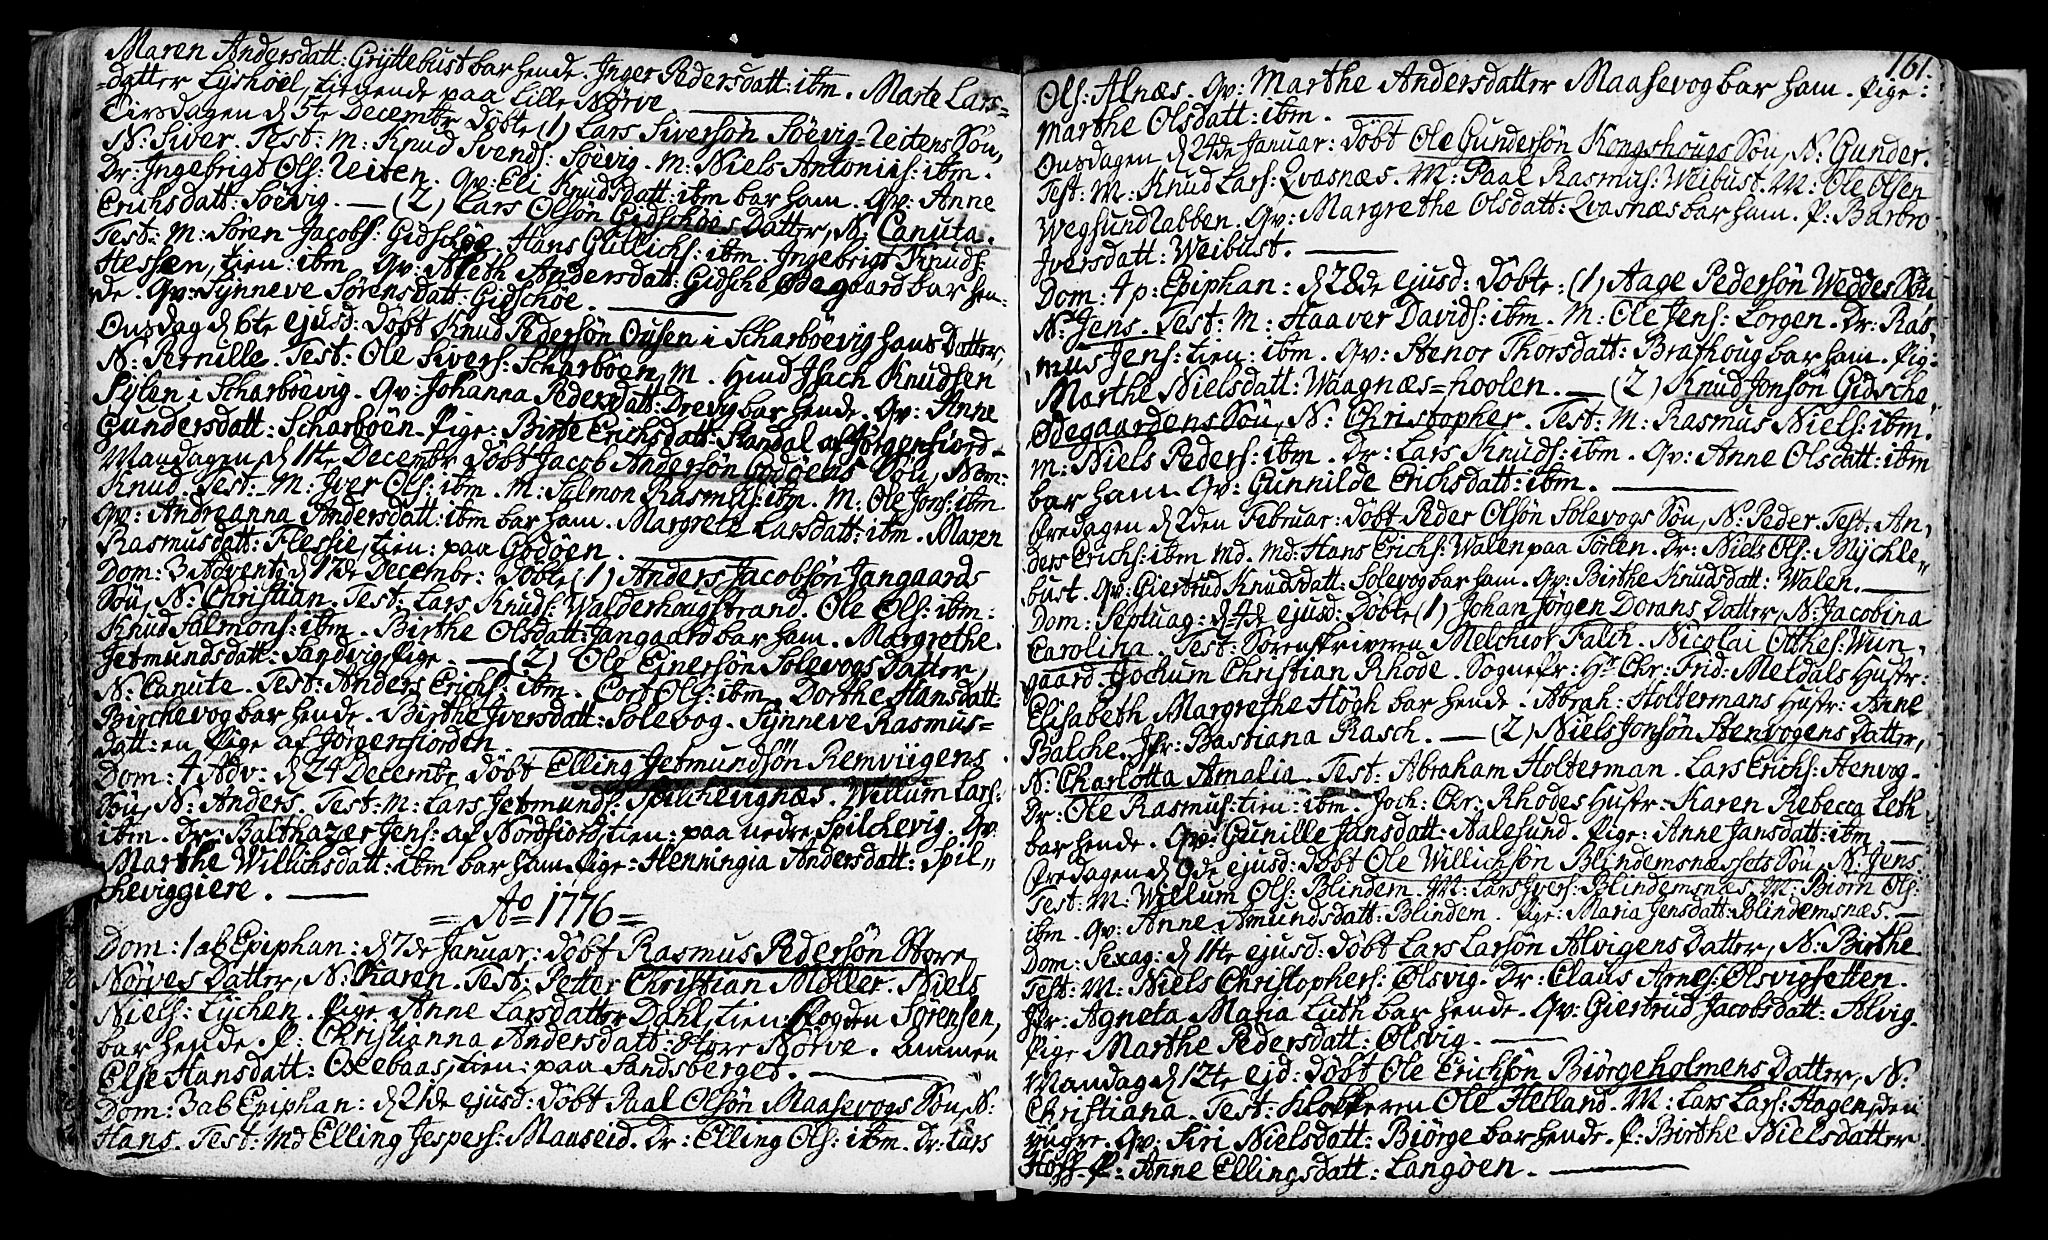 Maren Andersdatt: Gryttebust bar hende. Inger Pedersdatt: ibm. Marte Lars=
=datter Lyshoel, tienende paa Lille Nørve.
Tirsdagen d 5te Decembr døbte (1) Lars Siversøn Søevig=Leitens Søn,
N: Siver. Test: M: Knud Svends: Søevig. M: Niels Antonius: ibm.
Dr: Ingebrigt Ols: Leiten. Qv: Eli Knudsdatt: ibm bar ham. Qv: Anne
Erichsdatt: Søevig. — (2) Lars Olsøn Gidschøes Datter, N: Canuta.
Test: M: Søren Jacobs: Gidschøe. Hans Gullichs: ibm. Ingebrigt Knuds:
Hessen, tien: ibm. Qv: Aleth Andersdatt: Gidsche Ødegaard bar hen=
de. Qv: Synneve Sørensdatt: Gidschøe.
Onsdag d 6te ejusd: døbt Knud Pedersøn Ousen i Scharbøevig hans Datter,
N: Pernille. Test: Ole Sivers: Scharbøen, M. Hmd Isach Knudsen
Sylen i Scharbøevig. Qv: Johanna Pedersdatt: Drevy bar hende. Qv: Anne
Gundersdatt: Scharbøen. Pige: Birte Erichsdatt: Standal af Jørgenfiord.
Mandagen d 11te Decembr døbt Jacob Andersøn Godøens Søn, Nom:
Knud. Test: M: Iver Ols: ibm. M: Salmon Rasmus: ibm. M: Ole Jons: ibm
Qv: Andreanna Andersdatt: ibm bar ham. Margrete Larsdatt: ibm. Maren
Rasmusdatt: Flessie, tien: paa Godøen.
Dom: 3 Adventi d 17de Decembr: døbte (1) Anders Jacobsøn Jangaards
Søn, N: Christian. Test: Lars Knuds: Walderhougstrand. Ole Ols: ibm:
Knud Salmons: ibm. Birthe Olsdatt: Jangaard bar ham. Margrethe
Jetmundsdatt: Sandvig Pige. — (2) Ole Einersøn Solevogs Datter,
N: Canute. Test: Anders Erichs: ibm. Cort Ols: ibm. Dorthe Hansdatt:
Birchevog bar hende. Birthe Iversdatt: Solevog. Synneve Rasmus=
datt: en Pige af Jørgenfiorden.
Dom: 4 Adv: d 24 Decembr døbt Elling Jetmundsøn Remviigens
Søn, N: Anders. Test: M: Lars Jetmunds: Spilchevignæs. Willum Lars:
ibm. Dr: Balthazer Jens: af Nordfiord tien: paa nedre Spilchevig. Qv:
Marthe Willichsdatt: ibm bar ham. Pige: Henningia Andersdatt: Spil=
cheviggiere.
= Ao 1776 =
Dom: 1 ab Epiphan: d 7de Januar: døbt Rasmus Pedersøn Store
Nørves Datter, N: Karen. Test: Petter Christian Møller. Niels
Niels: Lychen. Pige Anne Larsdatter Dahl, tien: Fogden Sørensen,
bar hende. P: Christianna Andersdatt: Store Nørve. Ammen
Else Hansdatt: Oxebaas, tien: paa Sandsberget.
Dom: 3 ab Epiphan: d 21de ejusd: døbt Paal Olsøn Maasevogs Søn, N:
Hans. Test: Md Elling Jespers: Mauseid. Dr: Elling Ols: ibm. Dr: Lars
161.
Ols: Alnæs. Qv: Marthe Andersdatter Maasevog bar ham. Pige:
Marthe Olsdatt: ibm.
Onsdagen d 24de Januar: døbt Ole Gundersøn Kongshougs Søn, N: Gunder.
Test: M: Knud Lars: Qvasnæs. M: Paal Rasmus: Weibust. M: Ole Olsen
Wegsundlabben. Qv: Margrethe Olsdatt: Qvasnæs bar ham. P: Barbro
Iversdatt: Weibust.
Dom: 4 p: Epiphan: d 28de ejusd: døbte: (1) Aage Pedersøn Weddes Søn
N: Jens. Test: M: Haaver Davids: ibm. M: Ole Jens: Lorgen. Dr: Ras=
mus Jens: tien: ibm. Qv: Stenor Thorsdatt: Brathoug bar ham. Pig:
Marthe Nielsdatt: Waagnæs=hoolen. — (2) Knud Jonsøn Gidsche
Ødegaardens Søn, N: Christopher. Test: M: Rasmus Niels: ibm.
M: Niels Peders: ibm. Dr: Lars Knuds: ibm. Qv: Anne Olsdatt: ibm
bar ham. Qv: Gunnilde Erichsdatt: ibm.
Fredagen d 2den Februar: døbt Peder Olsøn Solevogs Søn, N: Peder. Test: An=
ders Erichs: ibm Md. Md: Hans Erichs: Walen paa Sørlen. Dr: Niels Ols: Mychle=
bust. Qv: Giertrud Knudsdatt: Solevog bar ham. Qv: Birthe Knudsdatt: Walen.
Dom: Septuag: d 4de ejusd: døbte (1) Johan Jørgen Dorans Datter, N: Jacobina
Carolina. Test: Sorenskriveren Melchior Falch. Nicolai Otthes: Wun=
gaard. Jochum Christian Rhode. Sognepr: Hr Chr: Frid: Meldals Hustr:
Elisabeth Margrethe Høgh bar hende. Abrah: Holtermans Hustr: Anne
Balche. Jfr: Bastiana Rasch. — (2) Niels Jonsøn Stenvogens Datter,
N: Charlotta Amalia. Test: Abraham Holterman. Lars Erichs: Stenvog.
Dr: Ole Rasmus: tien: ibm. Joch: Chr: Rhodes Hustr: Karen Rebecca Leth
bar hende. Qv: Gunille Jansdatt: Aalesund. Pige: Anne Jansdatt: ibm.
Fredagen d 9de ejusd: døbt Ole Willichsøn Blindemsnæssets Søn, N: Jens.
Test: M: Willum Ols: Blindem. M: Lars Ivers: Blindemsnæs. M: Biørn Ols:
ibm. Qv: Anne Amundsdatt: Blindem. Pige: Maria Jensdatt: Blindemsnæs. —
Dom: Sexag: d 11te ejusd: døbt Lars Larsøn Alvigens Datter, N: Birthe
Test: M: Niels Christophers: Ølsvig. Dr: Claus Arnes: Ølsvigsetten.
Jfr: Agneta Maria Luth bar hende. Qv: Giertrud Jacobsdatt: Alvig.
Pige Marthe Pedersdatt: Ølsvig.
Mandag d 12te ejd: døbt Ole Erichsøn Biørgeholmens Datter, N:
Christiana. Test: Klokkeren Ole Hetland. M: Lars Lars: Hagen, den
yngre. Qv: Siri Nielsdatt: Biørge bar hende. P: Birthe Nielsdatter
Hoff. P: Anne Ellingsdatt: Langøen.